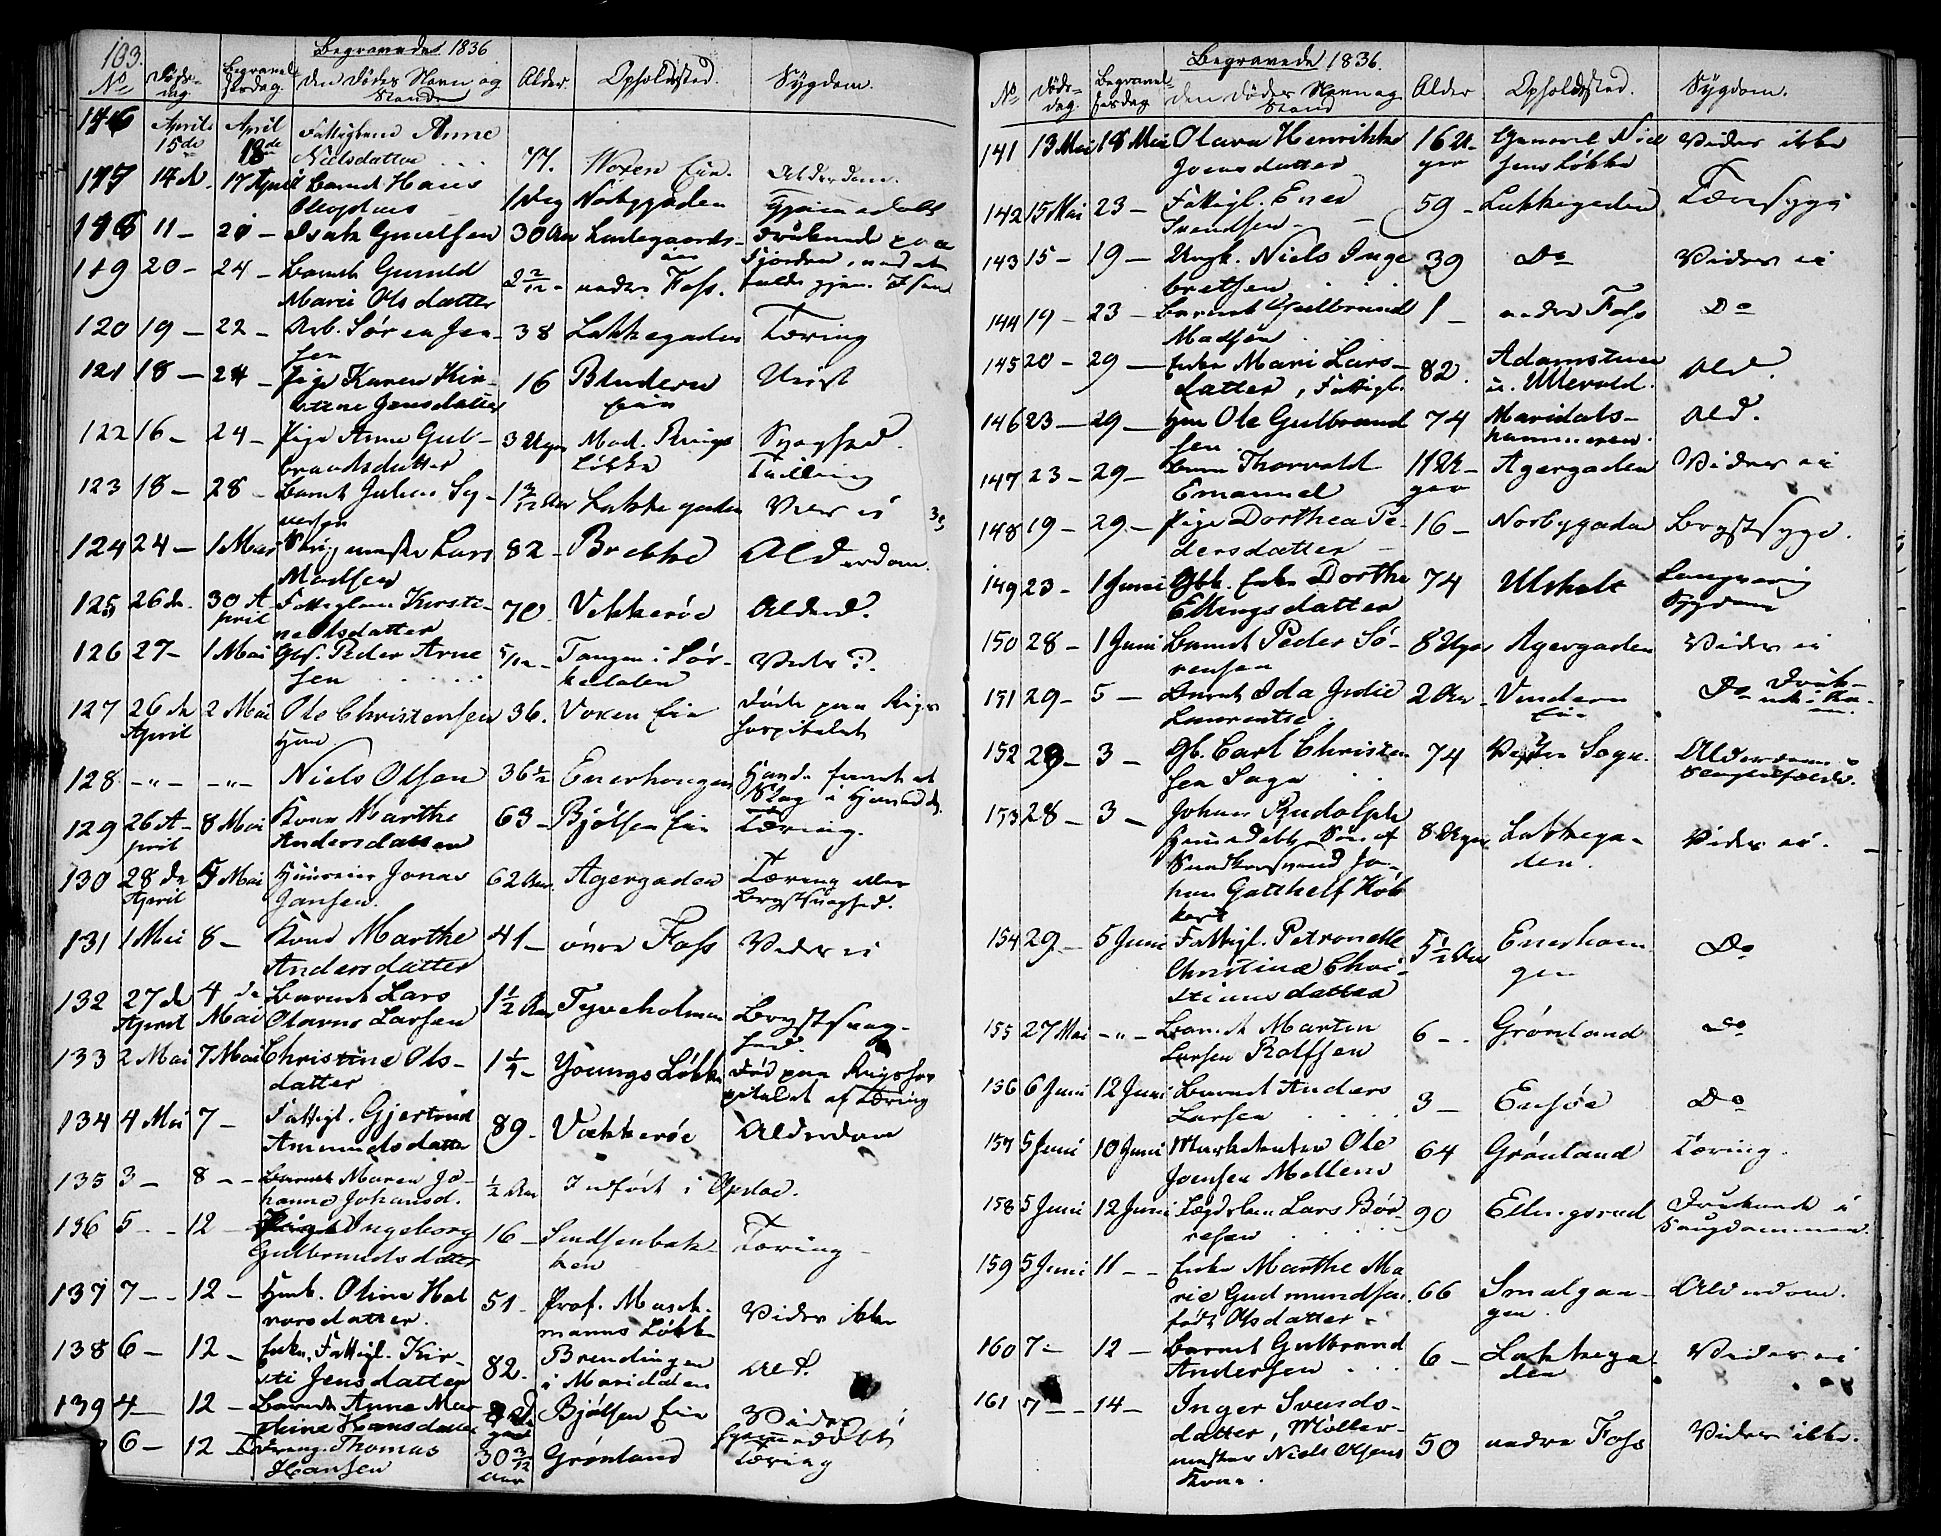 103.
Begravede 1836
No Døds-dag. Begravelsesdag. Den Dødes Navn og Stand Alder. Opholdssted. Sygdom.
116 April 15de April 18de Fattiglem Anne
Nielsdatter 77. Voxen Eie. Alderdom.
117 14de 17 April Barnet Hans
Olufsens 1 Dag Norbygaden Hjemmedøbt
118 11 - 20 - Isak Gundsen 30 Aar Ladegaards- Druknede paa
119 20 - 24 - Barnet Gunild
Marie Olsdatter 2 2/12 - nedre Foss.
120 19 - 22 - Arb. Søren Jen-
sen 38 Lakkegaden Tæring
121 18 - 24 - Pige Karen Kir-
stine Jensdatter 16 Blindern
Eie Uvist
122 16 - 24 - Pige Anne Gul-
brandsdatter 3 Uger Mad. Rings
Løkke Svaghed.
123 18 - 28 - Barnet Julius Sy-
versen 1 3/12 Aar Lakkegaden Vides ei
124 24 - 1 Mai Lars
Madsen 82 - Brekke Alderdom.
125 26de 30 April Fattiglem Kirsti-
ne Olsdatter 70. Vækkerøe Alderd.
126 27 - 1 Mai Gbf. Peder Arne
sen 5/12 - Tangen i Sør-
kedalen Vides ?.
127 26de April 2 Mai Ole Christensen
Hmd. 36. Voxen Eie Døde paa Rigs
hospitalet
128 -"- -"- Niels Olsen 36 1/2 Enerhougen Hands fundet et
Slag i Hovedet.
129 26 April 8 Mai Kone Marthe
Andersdatter 63 - Bjølsen Eie Tæring.
130 28de April 5 Mai Huuseier Jonas
Jansen. 62 Aar. Agergaden Tæring eller
Brystsvaghed.
131 1 Mai 8 - Kone Marthe
Andersdatter 41 - øvre Foss Vides ei
132 27de April 4de Mai Barnet Lars
Olavus Larsen 1 1/2 Aar Tyveholmen Brystsvag-
hed.
133 2 Mai 7 Mai Christine Ols-
datter 1 1/4 - Youngs Løkke Død paa Rigshos
pitalet af Tæring
134 4 Mai 7 - Fattigl. Gjertrud
Amundsdatter 89. Vækkerøe Alderdom
135 3 - 8 - - Barnet Maren Jo-
hanne Johansd. 1/2 Aar Indført i Opsloe.
136 5 - - 12 - Pige Ingeborg
Gulbrandsdatter 16 - Sindsenbak
ken Tæring -
137 7 - - 12 - Hmk. Oline Hal
vorsdatter. 51 - Prof. Masch-
manns Løkke Vides ikke
138 6 - 12 - Enke, Fattigl. Kir-
sti Jensdatter 82. Brendingen
i Maridalen Ald.
139 4 - 12 - Barnet Anne Mar
thine Hansdatter Bjølsen Eie Vides
hjemmedøbt
6 - 12 Thomas
Hansen 30 3/12 Aar Grønland Tæring
Begravede 1836.
No Døds-dag. Begravelsesdag Den Dødes Navn og Stand Alder Opholdssted. Sygdom.
141 13 Mai 18 Mai Olava Henrikke
Jonsdatter 16 Uger General
Løkke Vides ikke
142 15 Mai 23 - Fattigl. Ener
Svendsen - 59 - Lakkegaden Tæresyge
143 15 - 19 - Ungk. Niels Inge
bretsen 39 Do Vides ei
144 19 - 23 - Barnet Gulbrand
Madsen 1 - nedre Foss Do
145 20 - 29 - Enke Mari Lars-
datter, Fattigl. 82. Adamstuen
u. Ullevold. Ald.
146 23 - 29 - Hm Ole Gulbrand
sen 74 Maridals-
hammeren. Ald.
147 23 - 29 - Barn Thorvald
Emanuel 11 Uger Agergaden Vides ei
148 19 - 29 - Pige Dorthea Pe-
dersdatter - 16 - Norbygaden Brystsyge.
149 23 - 1 Juni Gbk. Enke Dorthe
Ellingsdatter 74 Ulsholt Langvarig
Sygdom
150 28 - 1 Juni Barnet Peder Sø-
rensen 8 Uger Agergaden Vides ei
151 29 - 5 - Barnet Ida Indie
Laurentse 2 Aar - Vindern
Eie Do
152 29 - 3 - Gb. Carl Christen
sen 74 Vestre Sogn. Alderdom
153 28 - 3 - Johan Rudolph
Hjemmedøbt Søn af
Jo-
han Gotthelf 8 Uger Lakkega-
den. Vides ei.
154 29 - 5 Juni Fattigl. Petronelle
Christine Chri-
stiansdatter 5 1/2 Aar Enerhou
gen Do
155 27 Mai -"- Barnet Martin
Larsen Rolfsen 6 - . Grønland Do
156 6 Juni 12 Juni Barnet Anders
Larsen 3 - Ensøe Do
157 5 Juni 10 Juni Markedenter Ole
Joensen Mellem 64 Grønland Tæring.
158 5 Juni 12 Juni Lægdslem Lars Bør-
resen 90 Ellingsrud Druknede i
Saugdammen.
159 5 Juni 11 - - Enke Marthe Ma
rie Gudmundsen.
født Olsdatter - 66 Smalgan-
gen. Alderdom.
160 7 - 12 - Barnet Gulbrand
Andersen 6 - Lakkega
den Vides ei
161 7 - 14 - Inger Svends-
datter, Møller-
mester Niels Olsens
Kone. 50 nedre Foss Vides ikke.